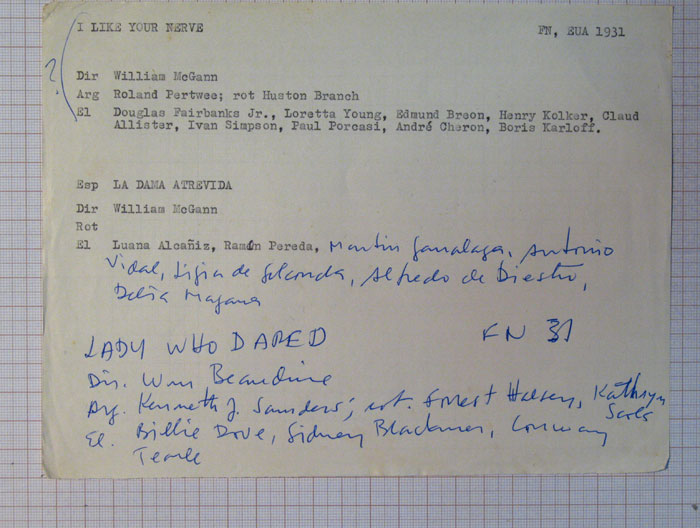 ? I LIKE YOUR NERVE FN, EUA 1931
Dir William McGann
Arg Roland Pertwee; rot Huston Branch
El Douglas Fairbanks Jr., Loretta Young, Edmund Breon, Henry Kolker, Claud
Allister, Ivan Simpson, Paul Porcasi, André Cheron, Boris Karloff.
Esp LA DAMA ATREVIDA
Dir William McGann
Rot
El Luana Alcañiz, Ramón Pereda, Martin Garralaga, Antonio
Vidal, Ligia de Golconda, Alfredo de Diestro,
Delia Magana
LADY WHO DARED FN 31
Dir. Wm Beaudine
Arg. Kenneth J. Saunders; rot. Forrest Halsey, Kathryn
Scola
El. Billie Dove, Sidney Blackmer, Conway
Tearle